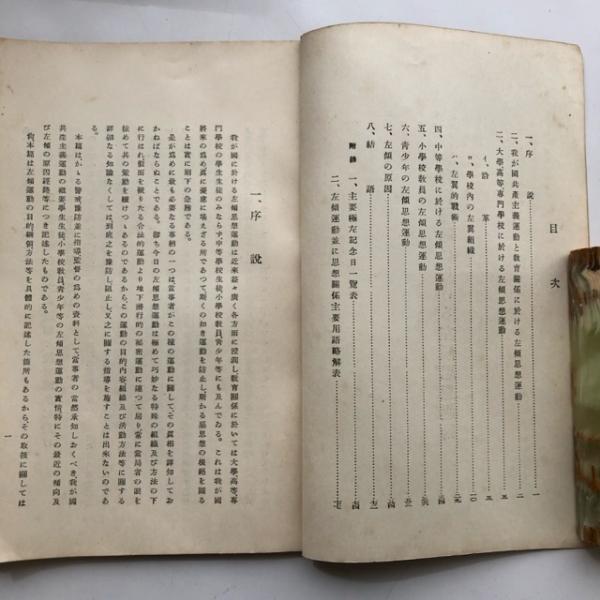 目次
一、序説……一
二、我が國共産主義運動と教育關係に於ける左傾思想運動……二
二、大學高等專門學校に於ける左傾思想運動……五
イ、沿革……五
ロ、學校内の左翼組織……一〇
ハ、左翼的戰術
四、中等學校に於ける左傾思想運動
五、小學校教員の左傾思想運動
六、青少年の左傾思想運動
七、左傾の原因
八、結語
附錄 一、主要極左記念日一覽表
二、左傾運動並に思想關係主要用語略解表
一、序說
我が國に於ける左傾思想運動は近來益々廣く各方面に浸潤し教育關係に於いては大學高等專
門學校の學生生徒のみならず、中等學校生徒小學校教員、青少年等にも及んである。これは我が國
將來の爲め眞に憂慮に堪えざる所であつて斯くの如き運動を防止し斯かる惡思想の根絶を圖る
ことは實に刻下の急務である。
是が爲めに最も必要なる事柄の一つは當事者がこの種の運動に關して其の眞相を詳知してお
かねばならぬことである。即ち今日の左傾思想運動は極めて巧妙なる特殊の組織及び方法の下
に行はれ假面を被ふたる合法的運動より地下潜行的の秘密運動に迄つて居り常に當局者の眼を
掠めて其の策動を續けつゝあるのであるからこの運動の目的內容組織及び活動方法等に關する
詳細なる知識なくしては到底之を豫防し又之に關する指導を施すことは出來ないのであ
る。
本篇はかゝる警戒豫防並に指導監督の爲めの資料として當事者の當然承知しおくべき我が國
共産主義運動の槪要學生生徒小學校教員、青少年等の左傾思想運動の實情特にその最近の傾向及
び左傾の原因經路等につき記述したものである。
尙本篇は左傾運動の目的綱領方法等を具體的に記述した箇所もあるからその取扱に關しては
一